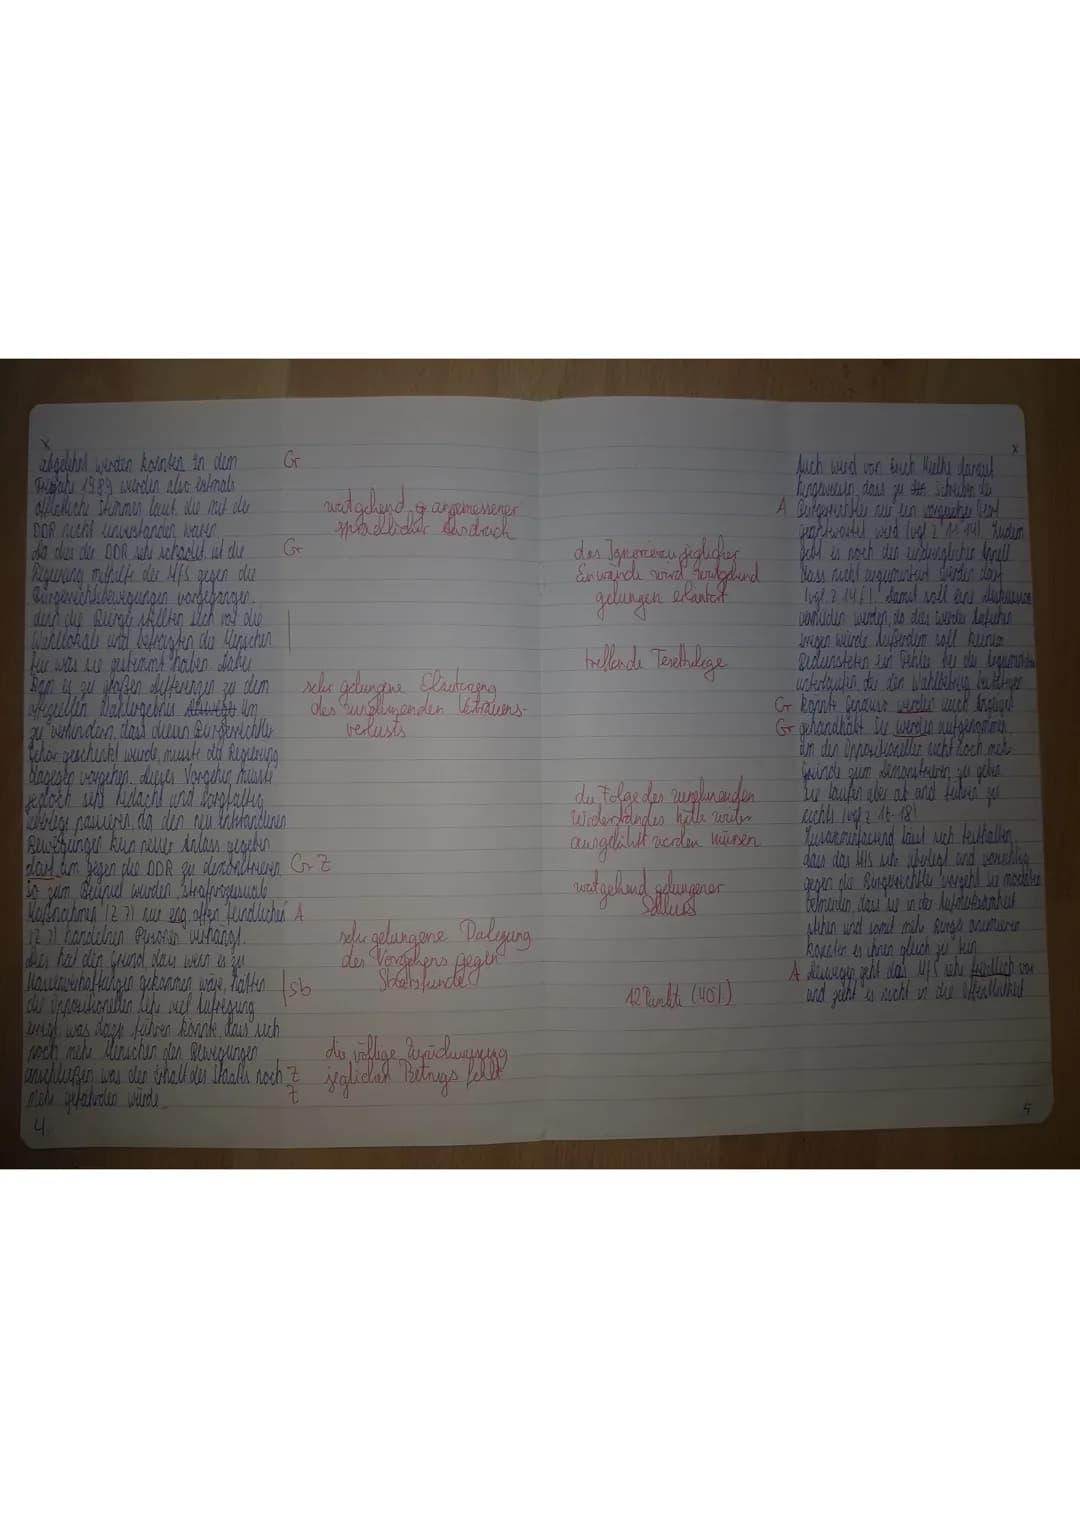 x
abgelehnt werden konnten. In dem
Frühjahr 1989 wurden also erstmals
öffentliche Stimmen laut, die mit der
DDR nicht einverstanden waren.
da dies der DDR sehr schadet, ist die
Regierung mithilfe der MfS gegen die
Bürgerrechtsbewegungen vorgegangen.
denn die Bürger stellten sich vor die
Wahllokale und befragten die Menschen
für was sie gestimmt haben. Dabei
kam es zu großen Differenzen zu dem
offiziellen Wahlergebnis. Um
zu verhindern, dass diesen Bürgerrechtler
Gehör geschenkt wurde, musste die Regierung
dagegen vorgehen. Dieses Vorgehen musste
jedoch sehr bedacht und sorgfältig
überlegt passieren, da den neu entstandenen
Bewegungen kein neuer Anlass gegeben
darf um gegen die DDR zu demonstrieren.
So zum Beispiel wurden "strafprozessuale
Maßnahmen" (Z.7) nur eng "offen feindlichen"
(Z.7) handelnden Personen verhängt.
Dies hat den Grund, dass wenn es zu
Massenverhaftungen gekommen wäre, hätten
die Oppositionellen sehr viel Aufregung
erregt, was dazu führen könnte, dass sich
noch mehr Menschen den Bewegungen
anschließen was den Erhalt des Staats noch
mehr gefährden würde.
4
Gr
weitgehend angemessener
sprachlicher Ausdruck
Gr
sehr gelungene Erläuterung
des zunehmenden Vertrauens-
verlusts
Gr Z
A
sehr gelungene Darlegung
des Vorgehens gegen
Staatsfeinde
sb
die völlige Zurückweisung
jeglichen Betrugs fehlt
Z
Z
das Ignorieren jeglicher
Einwände wird weitgehend
gelungen erläutert
treffende Textbelege
die Folge des zunehmenden
Widerstandes hätte weiter
ausgeführt werden müssen
weitgehend gelungener
Schluss
12 Punkte (40%)
x
Auch wird von Erich Mielke darauf
hingewiesen, dass zu Schreiben der
A Bürgerrechtler nur ein vorgegebener Text
geantwortet wird (vgl. Z. 11-14). Zudem
geht es noch den Appell
dass nicht argumentiert werden darf
(vgl. Z. 14f.). Damit soll eine Diskussion
vermieden werden, da dies wieder Aufsehen
erregen würde. Außerdem soll keinem
Bediensteten ein Fehler bei der Argumentation
unterlaufen, der den Wahlbetrug bestätigen
Gr könnte. Genauso werden auch Anzeigen
Gr gehandhabt. Sie werden aufgenommen
um den Oppositionellen nicht noch mehr
Gründe zum Demonstrieren zu geben.
Sie laufen aber ab und führen zu
nichts (vgl. Z. 16-18).
Zusammenfassend lässt sich festhalten,
dass das MfS sehr überlegt und vorsichtig
gegen die Bürgerrechtler vorgeht. Sie möchten
vermeiden, dass sie in der Aufmerksamkeit
stehen und somit mehr Bürger animieren
könnten es ihnen gleich zu tun.
A Deswegen geht das MfS sehr friedlich vor
und geht es nicht in die Öffentlichkeit
5